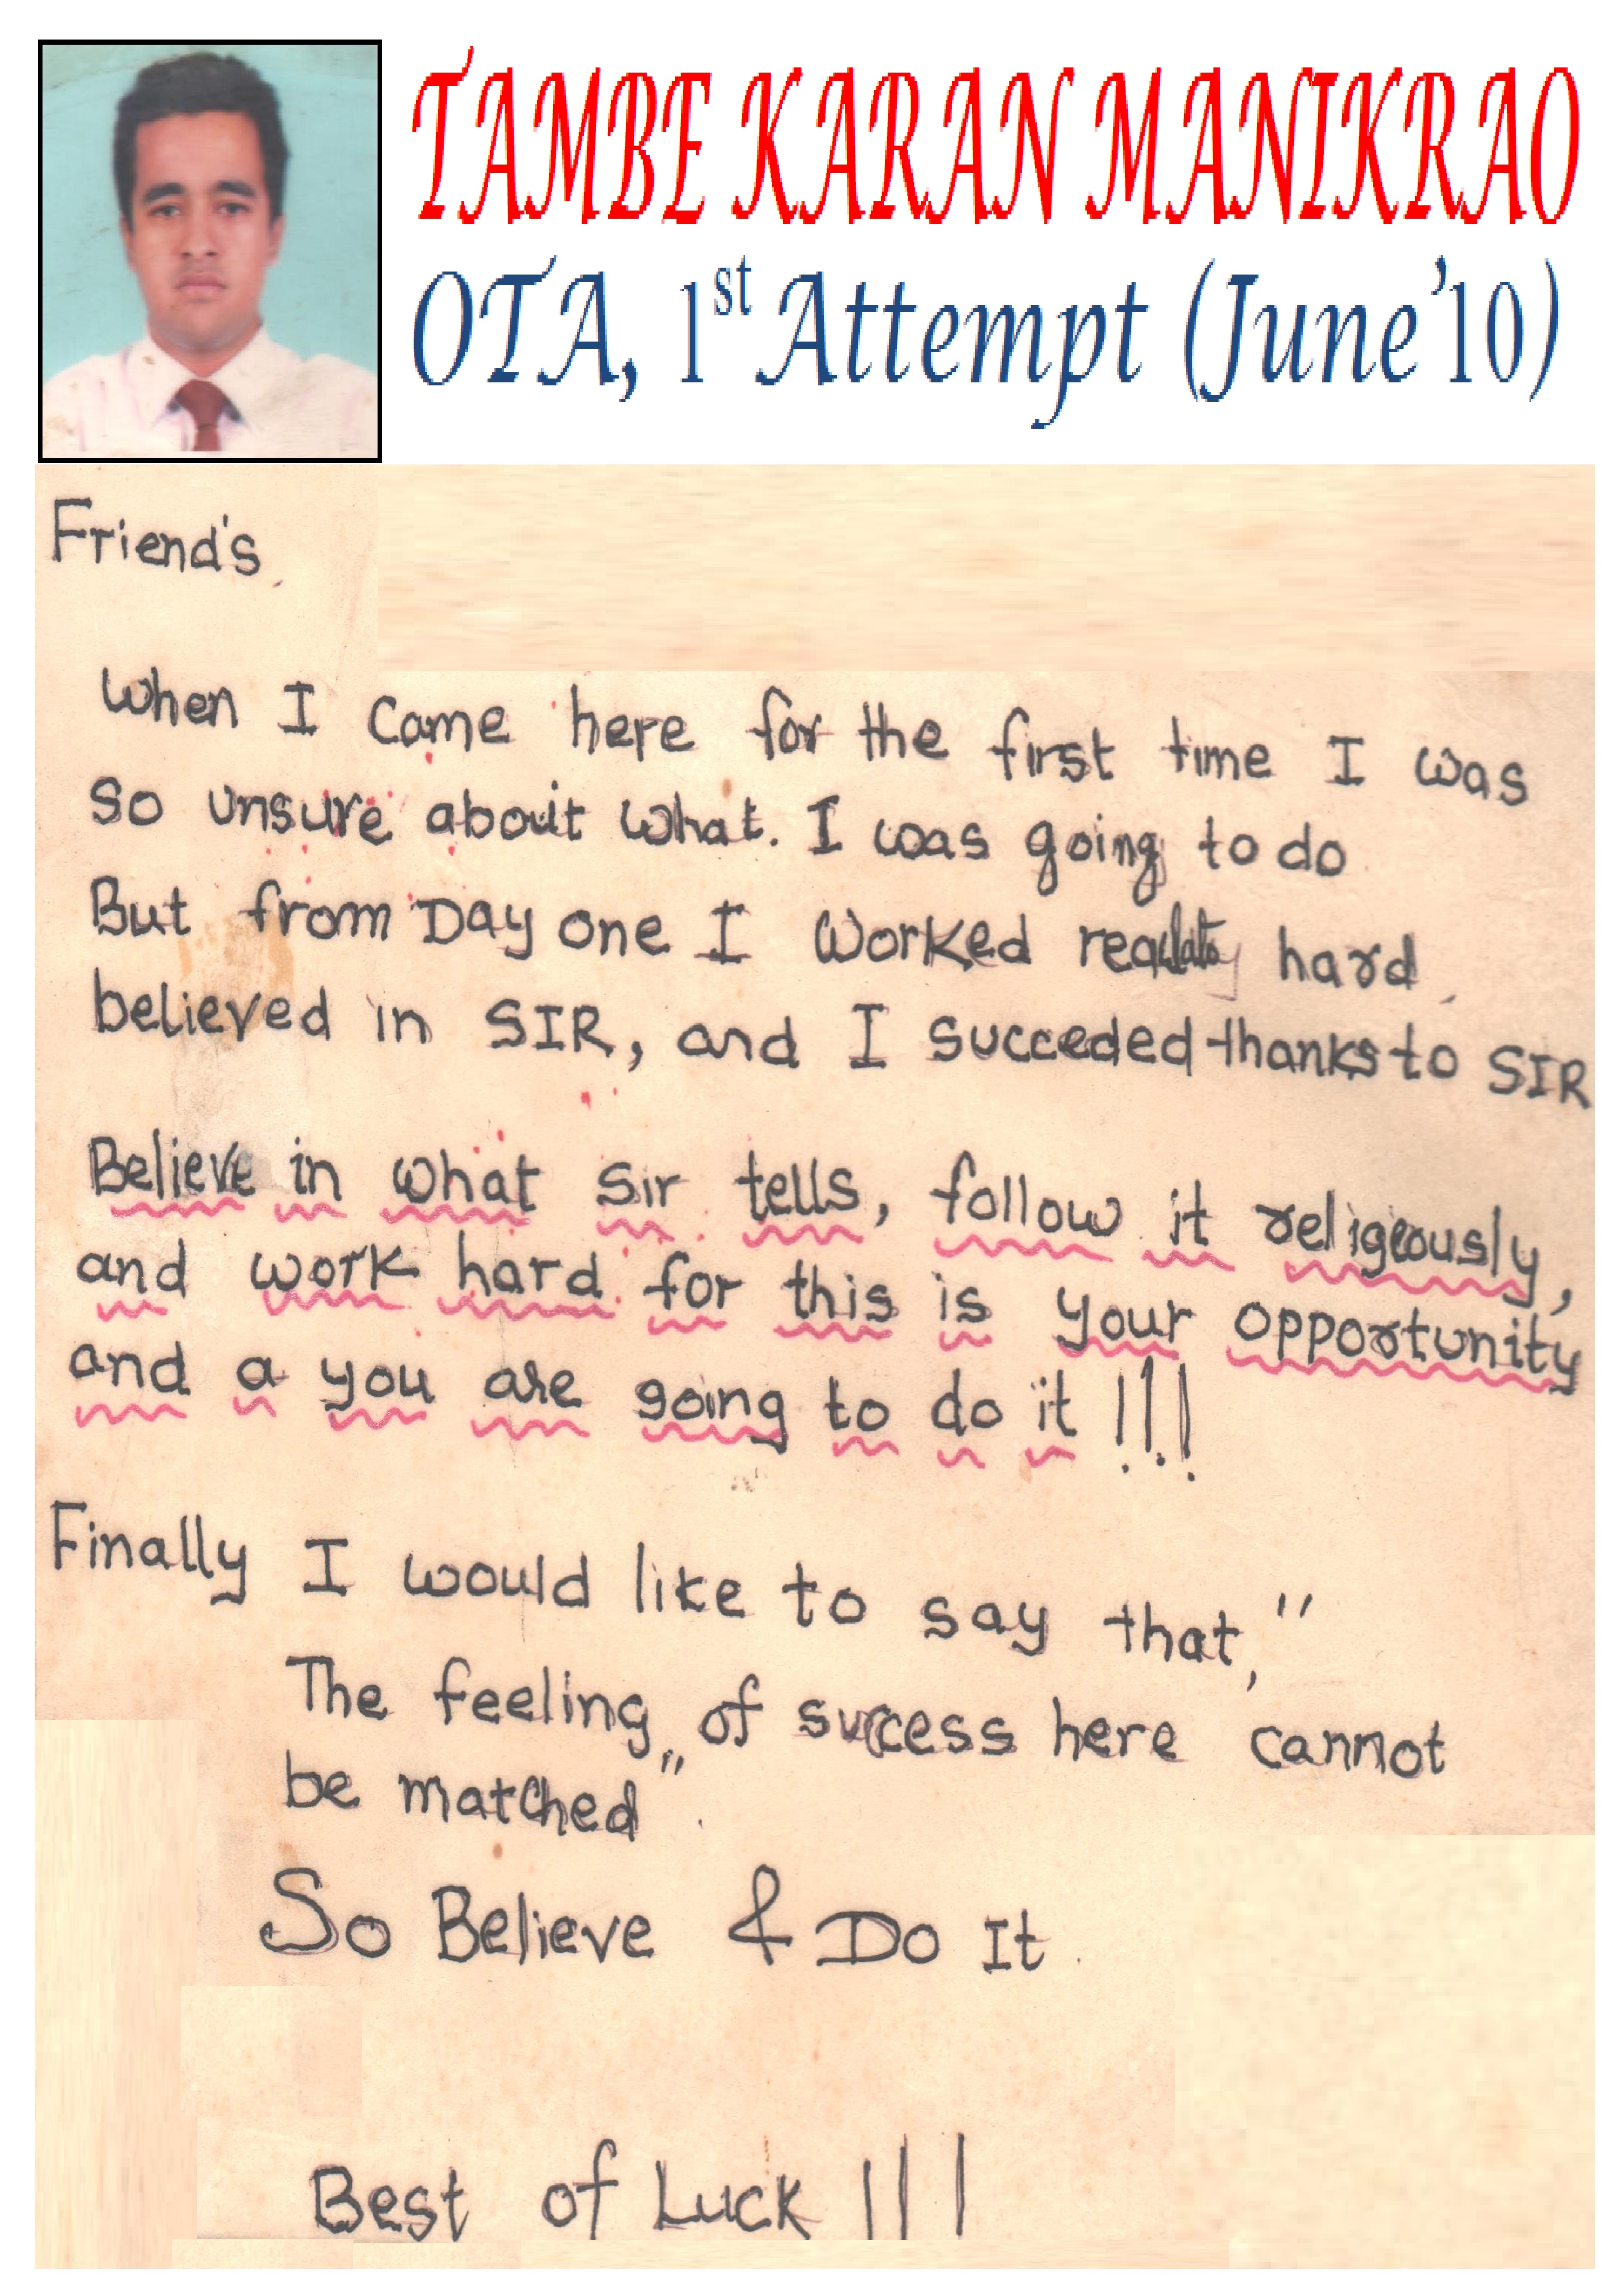 TAMBE KARAN MANIKRAO
OTA, 1st Attempt (June'10)
Friend's,
When I Came here for the first time I was
so unsure about what. I was going to do
But from Day one I Worked hard,
believed in SIR, and I succeded thanks to SIR
Believe in what Sir tells, follow it religeously,
and work hard for this is your opportunity
and a you are going to do it !!!
Finally I would like to say that,"
The feeling of success here cannot
be matched".
So Believe & Do It.
Best of Luck !!!